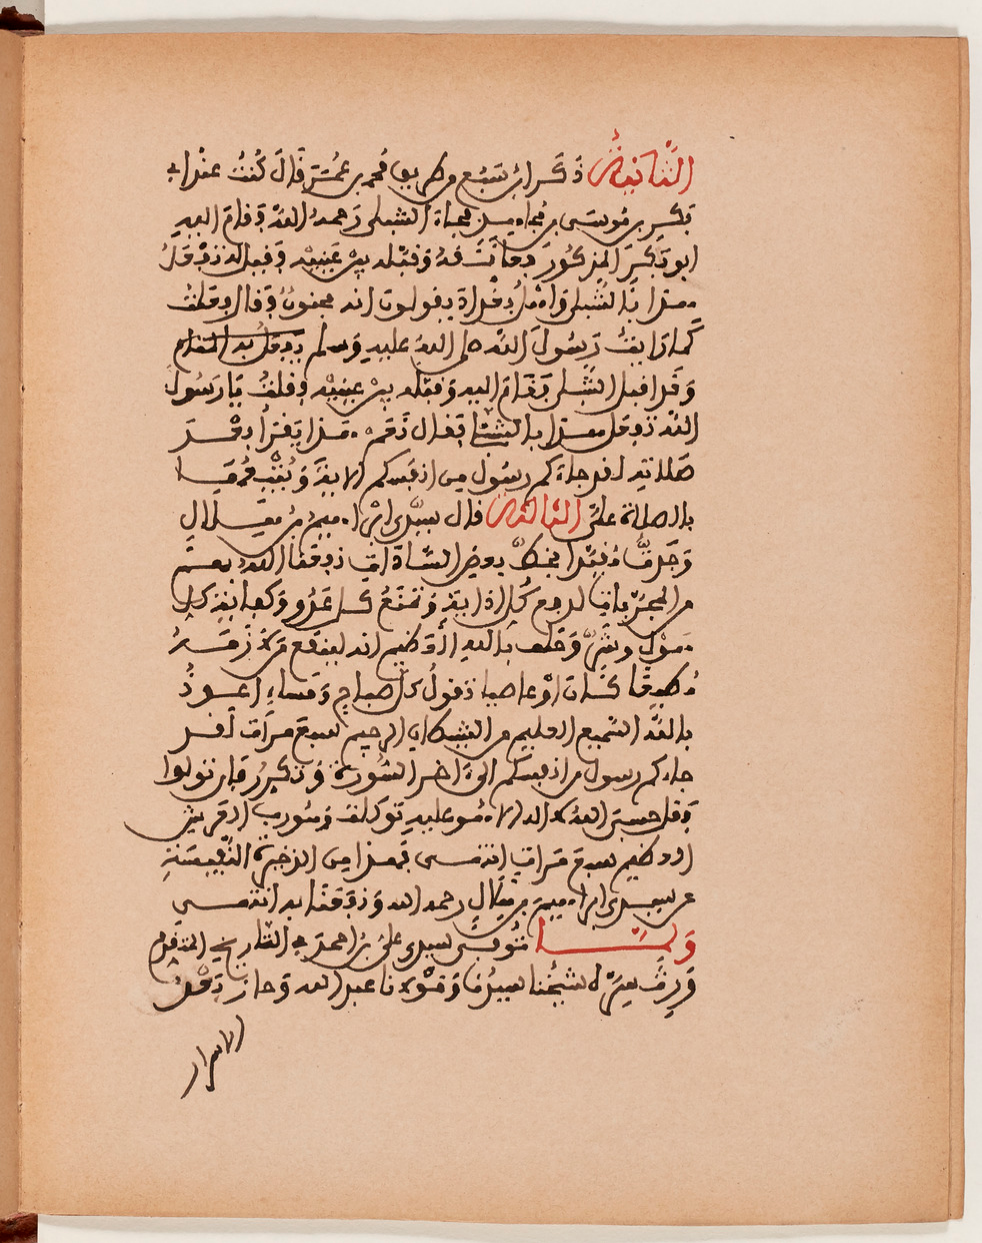 الثانية ذكر ابن سبع من طريق محمد بن عمر قال كنت عند ابي
بكر بن موسى بن مجاهد فجاء الشبلي رحمه الله فقام اليه
ابو بكر المذكور فعانقه وقبله بين عينيه فقيل له تفعل
هذا بالشبلي واهل بغداد يقولون انه مجنون فقال فعلت
كما رايت رسول الله صلى الله عليه وسلم يفعل به المنام
وقد اقبل الشبلي فقام اليه وقبله بين عينيه فقلت يا رسول
الله تفعل هذا بالشبلي فقال نعم هذا يقرأ بعد
صلاته لقد جاءكم رسول من انفسكم الاية ويتبعها
بالصلاة علي الثالثة قال سيدي ابراهيم بن هلال
وجدت مقيدا بخط بعض السادات نفعنا الله بهم
من المجرب لدفع كل اذاية ومنع كل عدو وكفاية كل
هول وشر وحلف بالله العظيم انه لينفع من لازمه
مطيعا كان او عاصيا تقول كل صباح ومساء اعوذ
بالله السميع العليم من الشيطان الرجيم سبع مرات لقد
جاءكم رسول من انفسكم الى اخر السورة وتكرر فان تولوا
فقل حسبي الله لا اله الا هو عليه توكلت وهو رب العرش
العظيم سبع مرات انتهى فهذا من الذخيرة النفيسة
عن سيدي ابراهيم بن هلال رحمه الله ونفعنا به انتهى
ولما توفي سيدي علي بن احمد في التاريخ المتقدم
ورث سره شيخنا سيدنا ومولانا عبد الله وحاز تلك
الاسرار